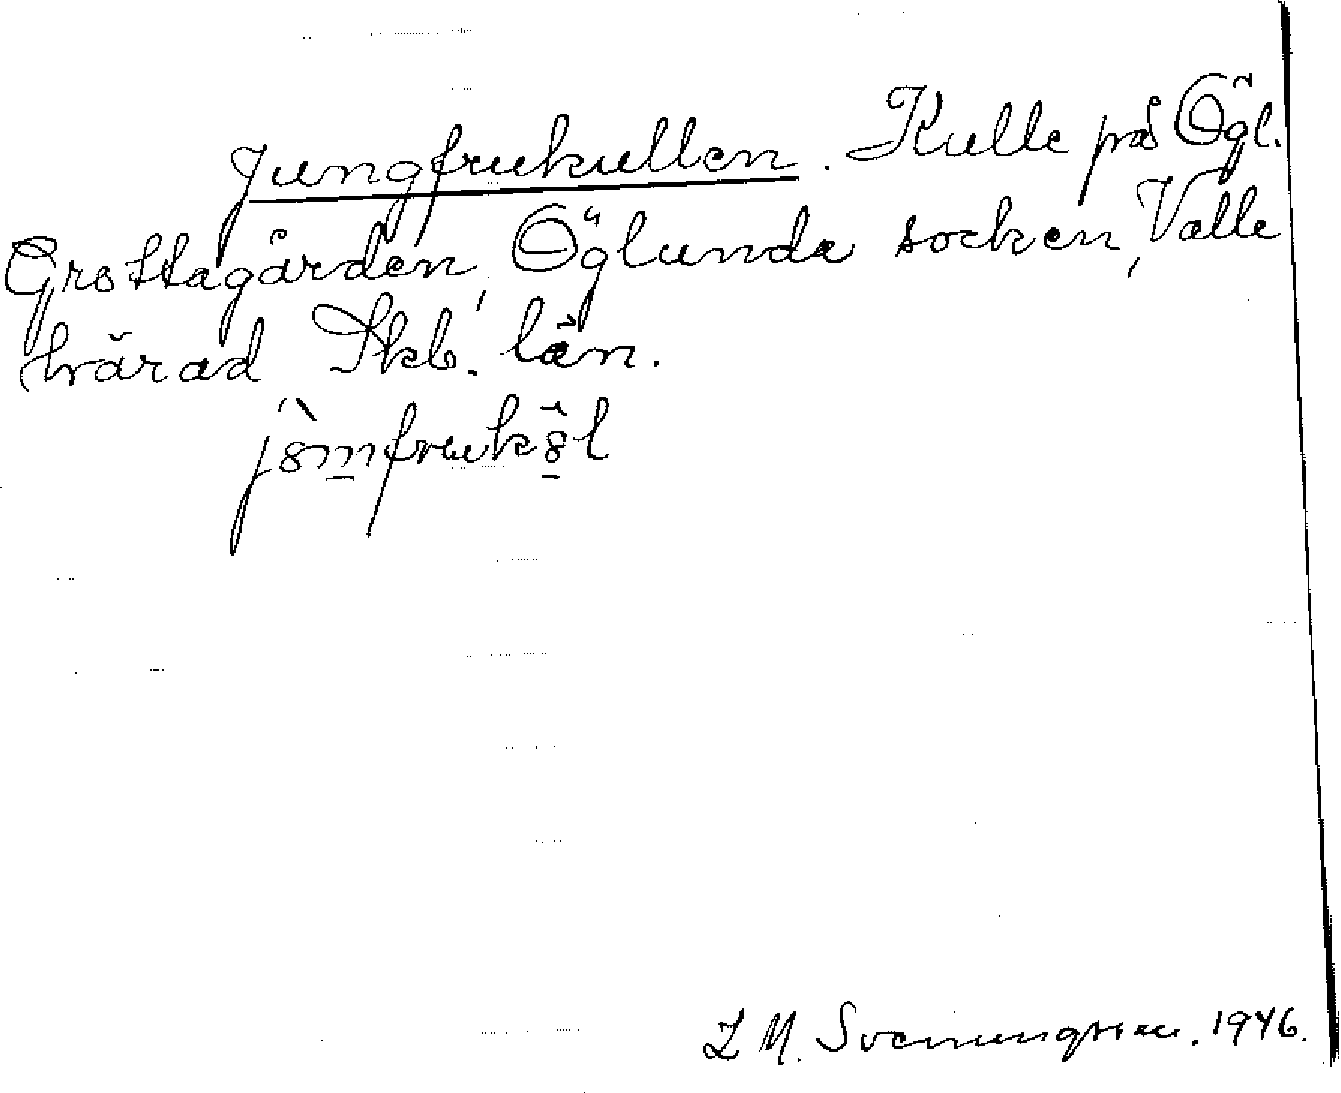 Jungfrukullen. Kulle på Ögl.
Grottagården, Öglunda socken, Valle
härad Skb. län.
Z M. Svenungsson. 1946.